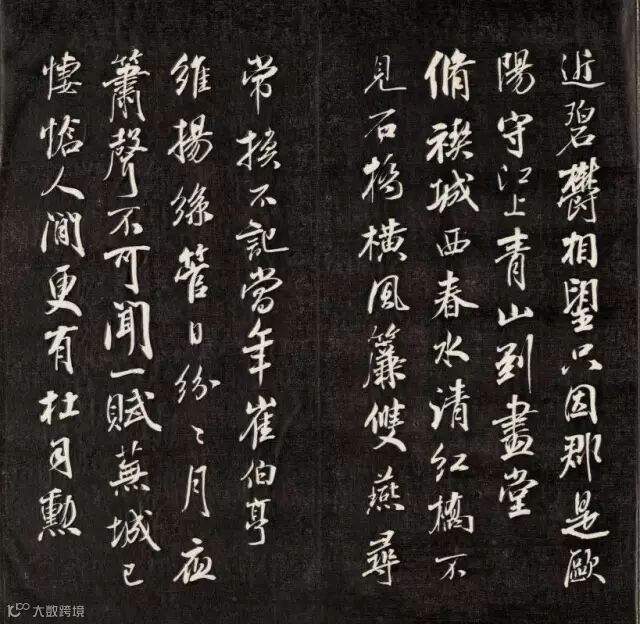 近碧欝相望只因郡是歐
陽守江上青山到畫堂
脩禊城西春水清紅橋不
見石橋橫風簾雙燕尋
常不記當年崔伯亨
維揚絲管日紛〻月夜
簫聲不可聞一賦蕪城已
悽愴人間更有杜司勳
大数跨境